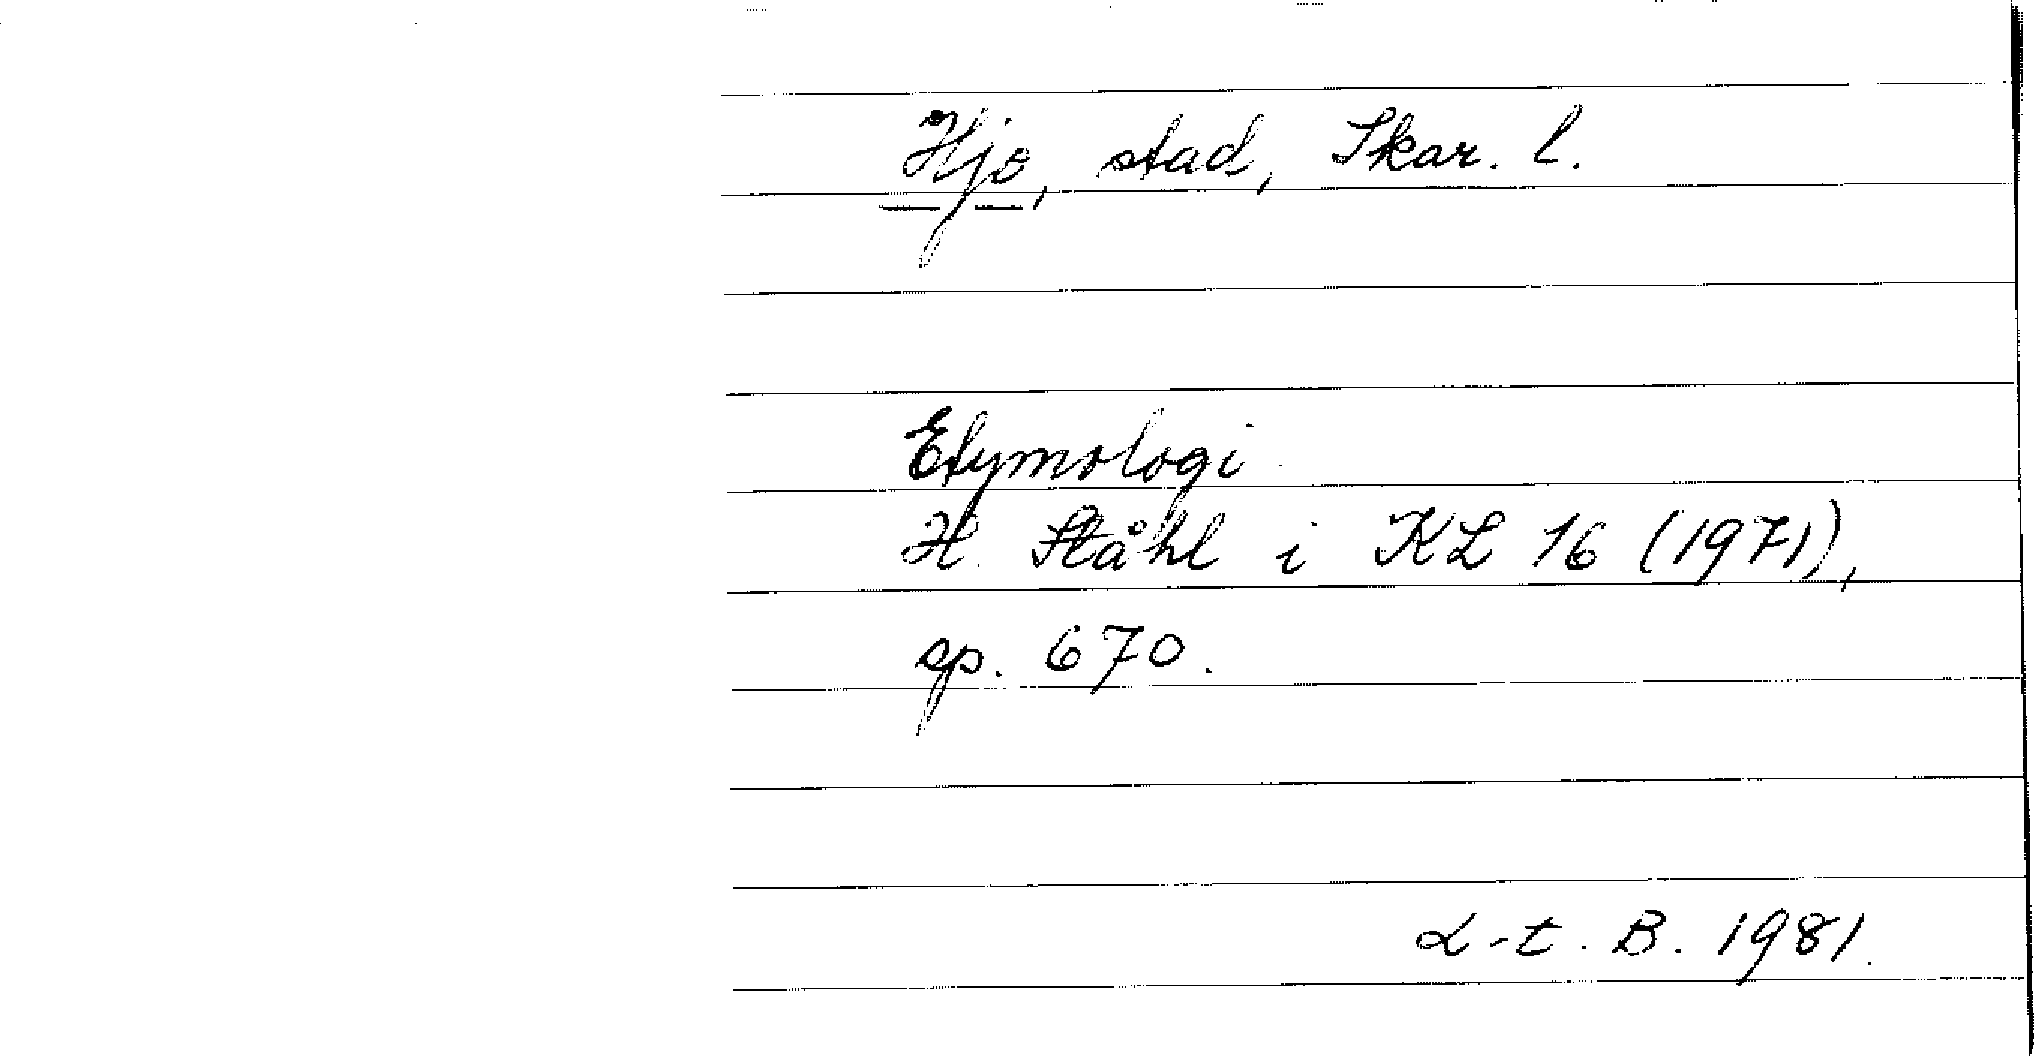 Hjo, stad, Skar. l.
Etymologi
H. Ståhl i KL 16 (1971),
sp. 670.
L-t. B. 1981.